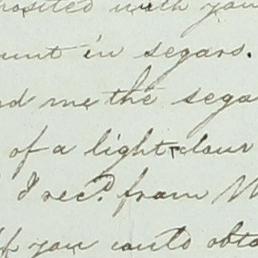 posited with you
unt in segars.
nd me the sega
of a light clour
I recd. from
If you could obta